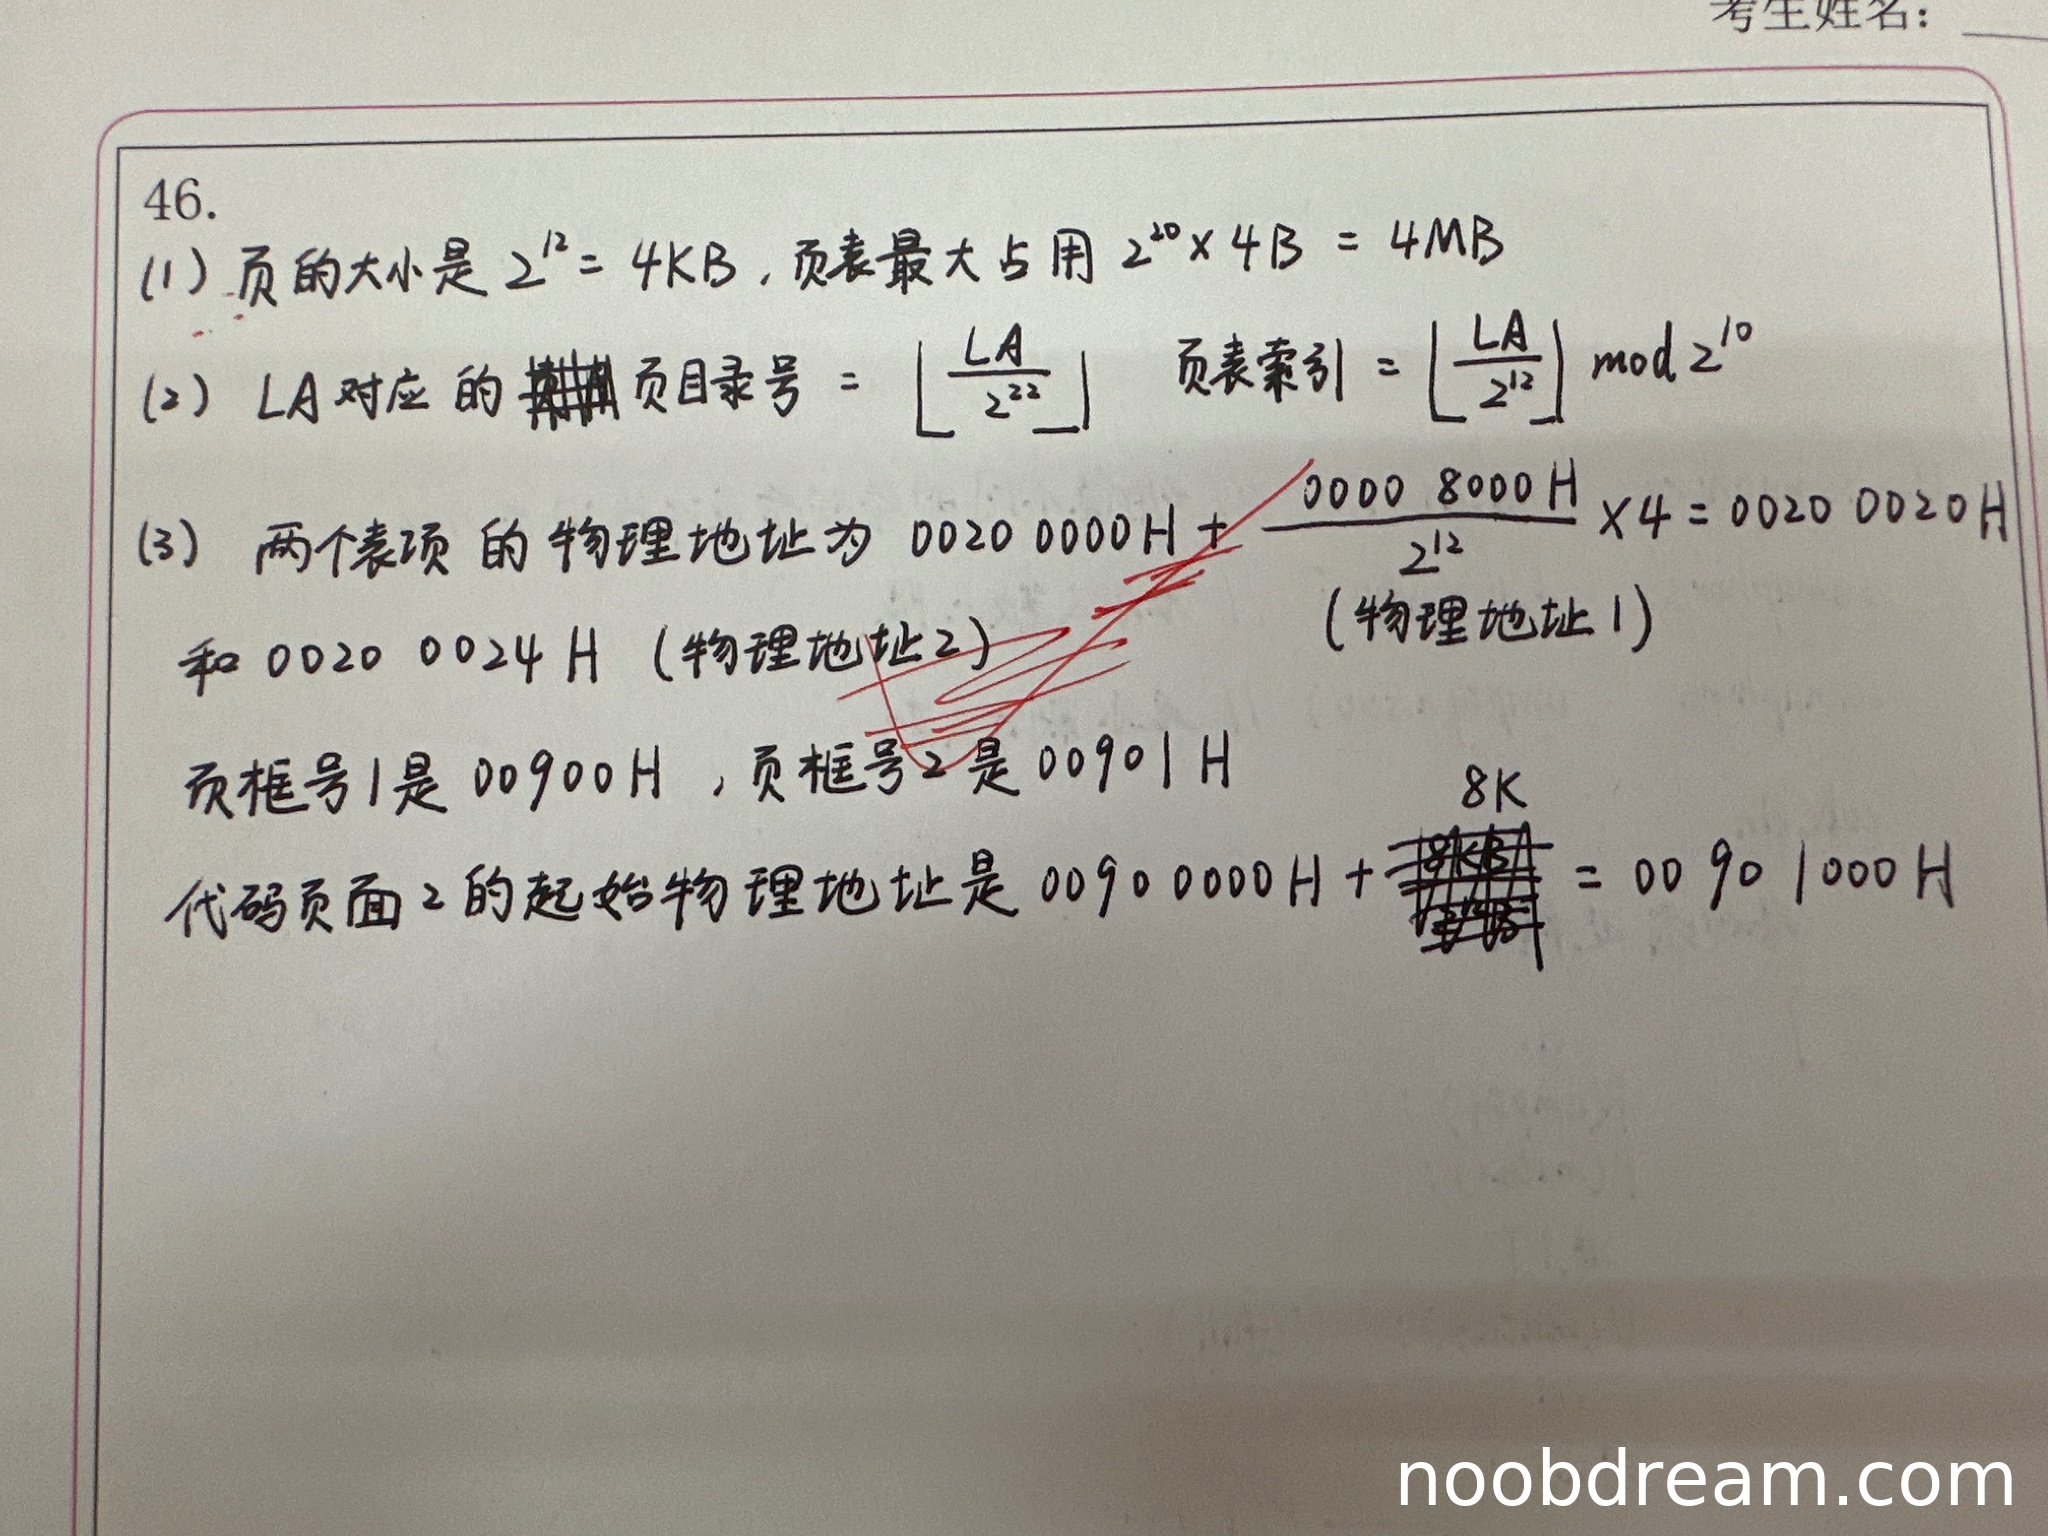 考生姓名:
46.
(1) 页的大小是 2^12 = 4KB, 页表最大占用 2^20 × 4B = 4MB
(2) LA对应的 页目录号 = ⌊LA/2^22⌋ 页表索引 = ⌊LA/2^12⌋ mod 2^10
(3) 两个表项的物理地址为 0020 0000H + 0000 8000H/2^12 × 4 = 0020 0020H
(物理地址1)
和 0020 0024H (物理地址2)
页框号1是 00900H, 页框号2是 00901H
8K
代码页面2的起始物理地址是 0090 0000H + = 0090 1000H
noobdream.com